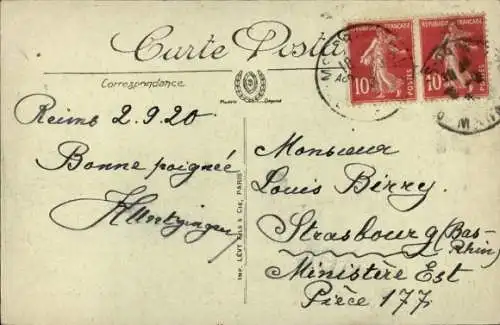 Carte Postale
REPUBLIQUE FRANÇAISE
REPUBLIQUE FRANÇAISE
10 POSTES
10 POSTES
Correspondance
Reims 2.9.20
Bonne poignée
IMP. LÉVY FILS & CIE, PARIS
Monsieur
Louis Bérry
Strasbourg (Bas-
Rhin)
Ministère Est
Pièce 177